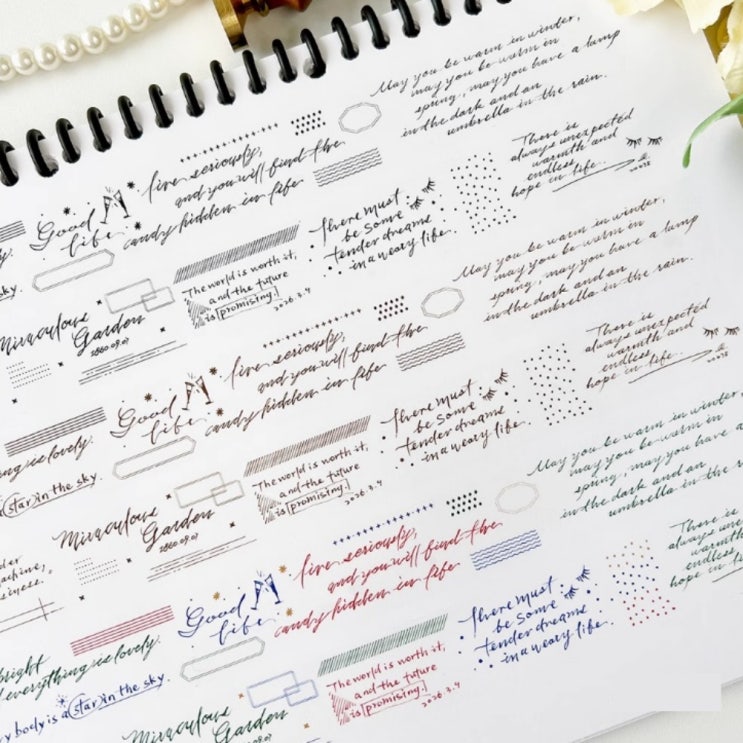 May you be warm in winter,
may you be warm in
spring, may you have a lamp
in the dark and an
umbrella in the rain.
There is
always unexpected
warmth and
endless
hope in life.
live seriously,
and you will find the
candy hidden in life
Good
life
There must
be some
tender dreams
in a weary life.
The world is worth it,
and the future
is promising.
2026.3.4
Miraculous
Garden
2860.09.07
May you be warm in winter,
may you be warm in
spring, may you have a lamp
in the dark and an
umbrella in the rain.
There is
always unexpected
warmth and
endless
hope in life.
live seriously,
and you will find the
candy hidden in life
Good
life
There must
be some
tender dreams
in a weary life.
The world is worth it,
and the future
is promising.
2026.3.4
is lovely.
star in the sky.
Miraculous
Garden
2860.09.07
May you be warm in winter,
may you be warm in
spring, may you have a
in the dark and an
umbrella in the
There is
always
warmth
endless
hope in
live seriously,
and you will find the
candy hidden in life
Good
life
There must
be some
tender dreams
in a weary life.
The world is worth it,
and the future
is promising.
2026.3.4
everything is lovely.
body is a star in the sky.
Miraculous
Garden